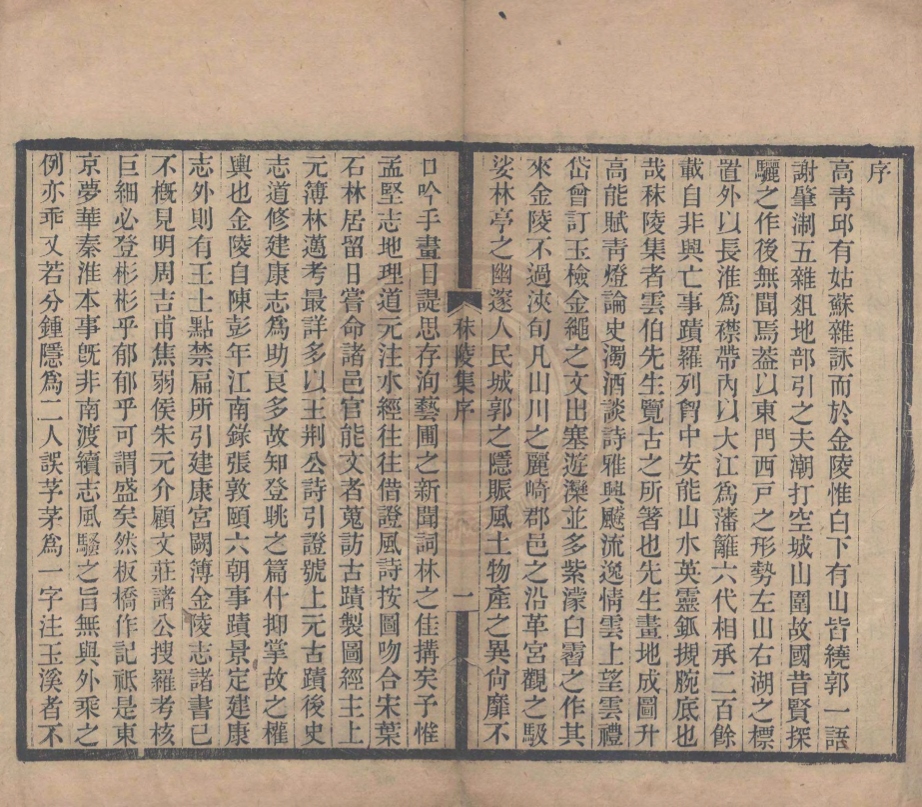 序
高靑邱有姑蘇雜詠而於金陵惟白下有山皆繞郭一語
謝肇淛五雜爼地部引之夫潮打空城山圍故國昔賢探
驪之作後無聞焉葢以東門西戸之形勢左山右湖之標
置外以長淮爲襟帶內以大江爲藩籬六代相承二百餘
載自非興亡事蹟羅列胷中安能山水英靈鈲摫腕底也
哉秣陵集者雲伯先生覽古之所箸也先生畫地成圖升
高能賦靑燈論史濁酒談詩雅興飇流逸情雲上望雲禮
岱曾訂玉檢金繩之文出塞遊灤並多紫濛白霫之作其
來金陵不過浹旬凡山川之麗崎郡邑之沿革宮觀之馺
娑林亭之幽邃人民城郭之隱賑風土物產之異尙靡不
口吟手畫目諟思存洵藝圃之新聞詞林之佳搆矣予惟
孟堅志地理道元注水經往往借證風詩按圖吻合宋葉
石林居留日嘗命諸邑官能文者蒐訪古蹟製圖經王上
元簿林邁考最詳多以王荆公詩引證號上元古蹟後史
志道修建康志爲助良多故知登眺之篇什抑掌故之權
輿也金陵自陳彭年江南錄張敦頤六朝事蹟景定建康
志外則有王士點禁扁所引建康宮闕簿金陵志諸書已
不槪見明周吉甫焦弱侯朱元介顧文莊諸公搜羅考核
巨細必登彬彬乎郁郁乎可謂盛矣然板橋作記祗是東
京夢華秦淮本事旣非南渡續志風騷之旨無與外乘之
例亦乖又若分鍾隱爲二人誤芧茅爲一字注玉溪者不
秣陵集序
一